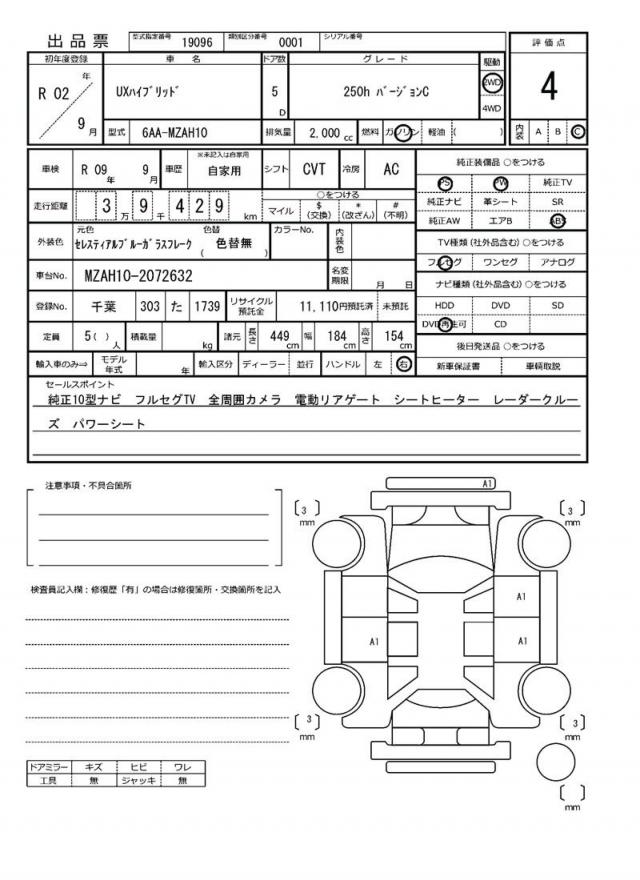 出品票 型式指定番号 19096 類別区分番号 0001 シリアル番号
初年度登録 車名 ドア数 グレード 駆動 評価点
R 02 年 9 月 UXハイブリッド 5 D 250h バージョンC 2WD 4WD 4
型式 6AA-MZAH10 排気量 2,000 cc 燃料 ガソリン 軽油 ( ) 内装 A B C
車検 R 09 年 9 月 車歴 ※未記入は自家用 自家用 シフト CVT 冷房 AC
純正装備品 ○をつける
PS PW 純正TV
純正ナビ 革シート SR
純正AW エアB ABS
走行距離 3 万 9 千 4 2 9 km ○をつける マイル $ (交換) * (改ざん) # (不明)
TV種類 (社外品含む) ○をつける
フルセグ ワンセグ アナログ
外装色 元色 セレスティアルブルーガラスフレーク 色替 ( 色替無 ) カラーNo. 内装色
車台No. MZAH10-2072632 名変期限 月 日
ナビ種類 (社外品含む) ○をつける
HDD DVD SD
DVD再生可 CD
登録No. 千葉 303 た 1739 リサイクル預託金 11,110円預託済 未預託
定員 5 ( ) 人 積載量 kg 諸元 長さ 449 cm 幅 184 cm 高さ 154 cm
後日発送品 ○をつける
新車保証書 車輌取説
輸入車のみ⇒ モデル年式 年 輸入区分 ディーラー 並行 ハンドル 左 右
セールスポイント
純正10型ナビ フルセグTV 全周囲カメラ 電動リアゲート シートヒーター レーダークルー
ズ パワーシート
注意事項・不具合箇所
検査員記入欄：修復歴「有」の場合は修復箇所・交換箇所を記入
ドアミラー キズ ヒビ ワレ
工具 無 ジャッキ 無
A1
[ 3 ] mm
[ 3 ] mm
A1
A1
A1
[ 3 ] mm
[ 3 ] mm
[ ] mm